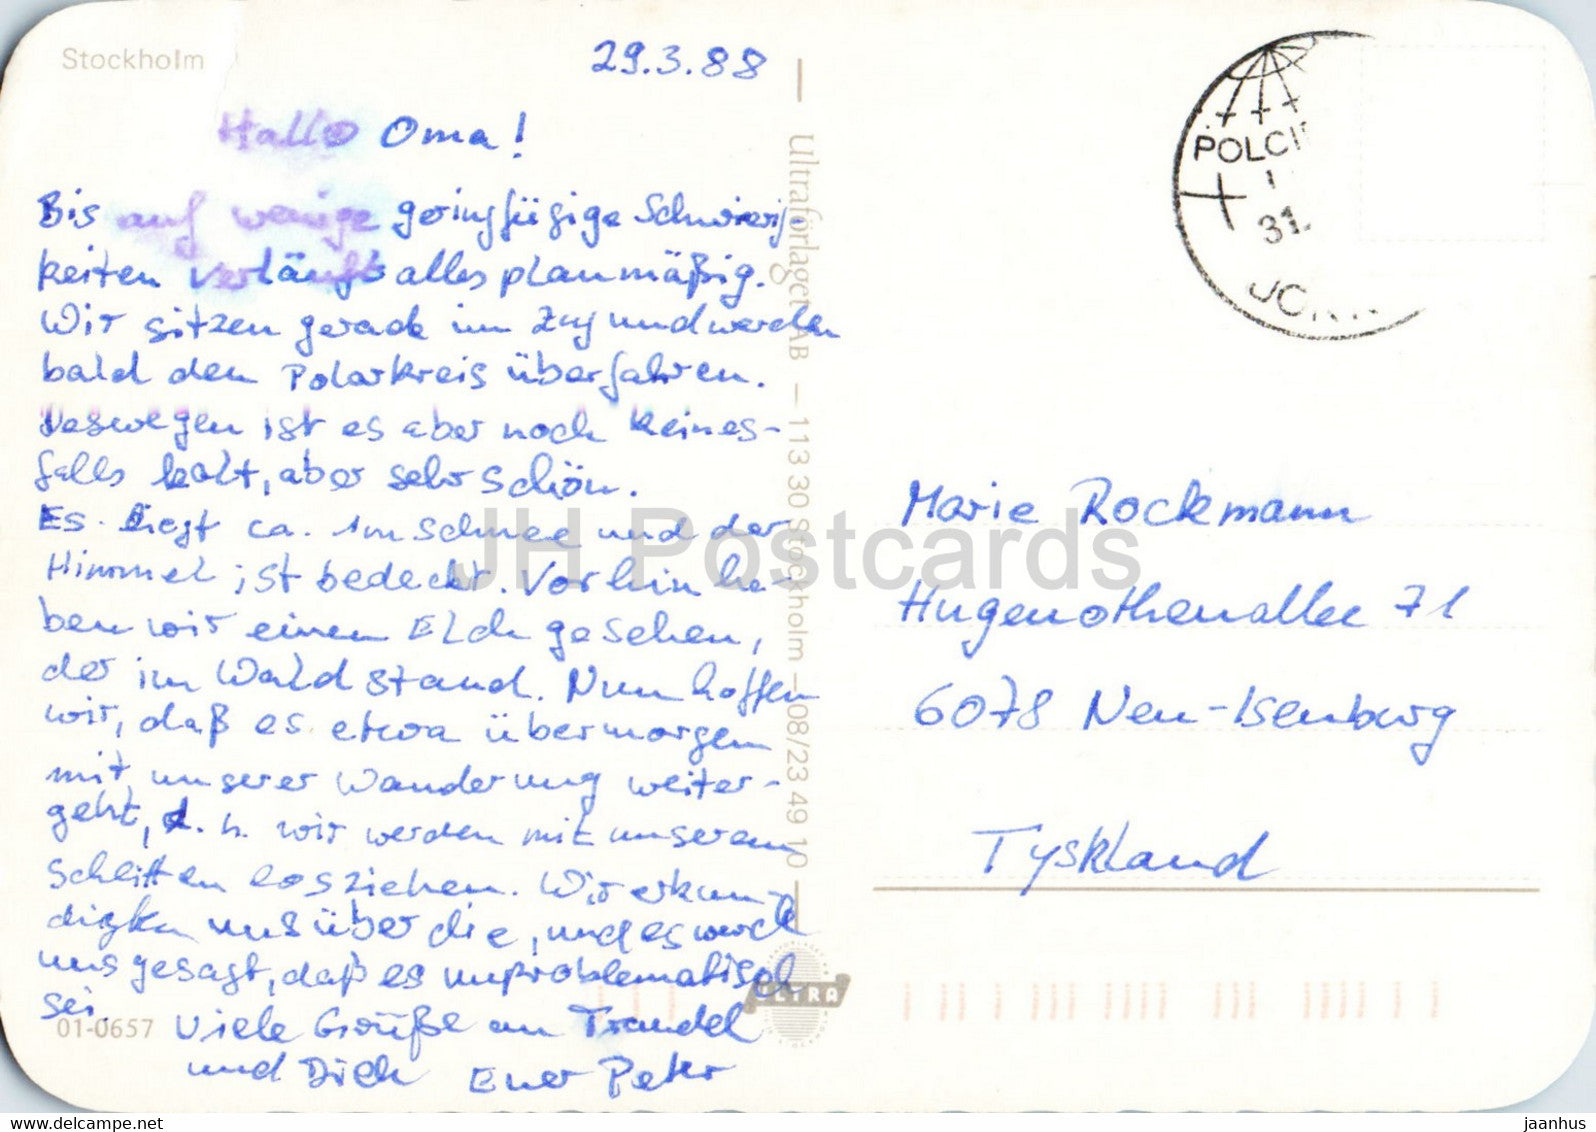 Stockholm
29.3.88
Hallo Oma!
Bis auf wenige geringfügige Schwierig-
keiten verläuft alles planmäßig.
Wir sitzen gerade im Zug und werden
bald den Polarkreis überfahren.
Deswegen ist es aber noch keines-
falls kalt, aber sehr schön.
Es liegt ca. 1m Schnee und der
Himmel ist bedeckt. Vorhin ha-
ben wir einen Elch gesehen,
der im Wald stand. Nun hoffen
wir, daß es etwa übermorgen
mit unserer Wanderung weiter-
geht, d.h. wir werden mit unserem
Schlitten losziehen. Wir erkun-
digten uns über die, und es wurde
uns gesagt, daß es unproblematisch
sei.
01-0657
Viele Grüße an Traudel
und Dich Euer Peter
Ultraförlaget AB – 113 30 Stockholm – 08/23 49 10
ULTRA
POLCI
31.
JOK
Marie Rockmann
Hugenottenallee 71
6078 Neu-Isenburg
Tyskland
JH Postcards
www.delcampe.net
jaanhus